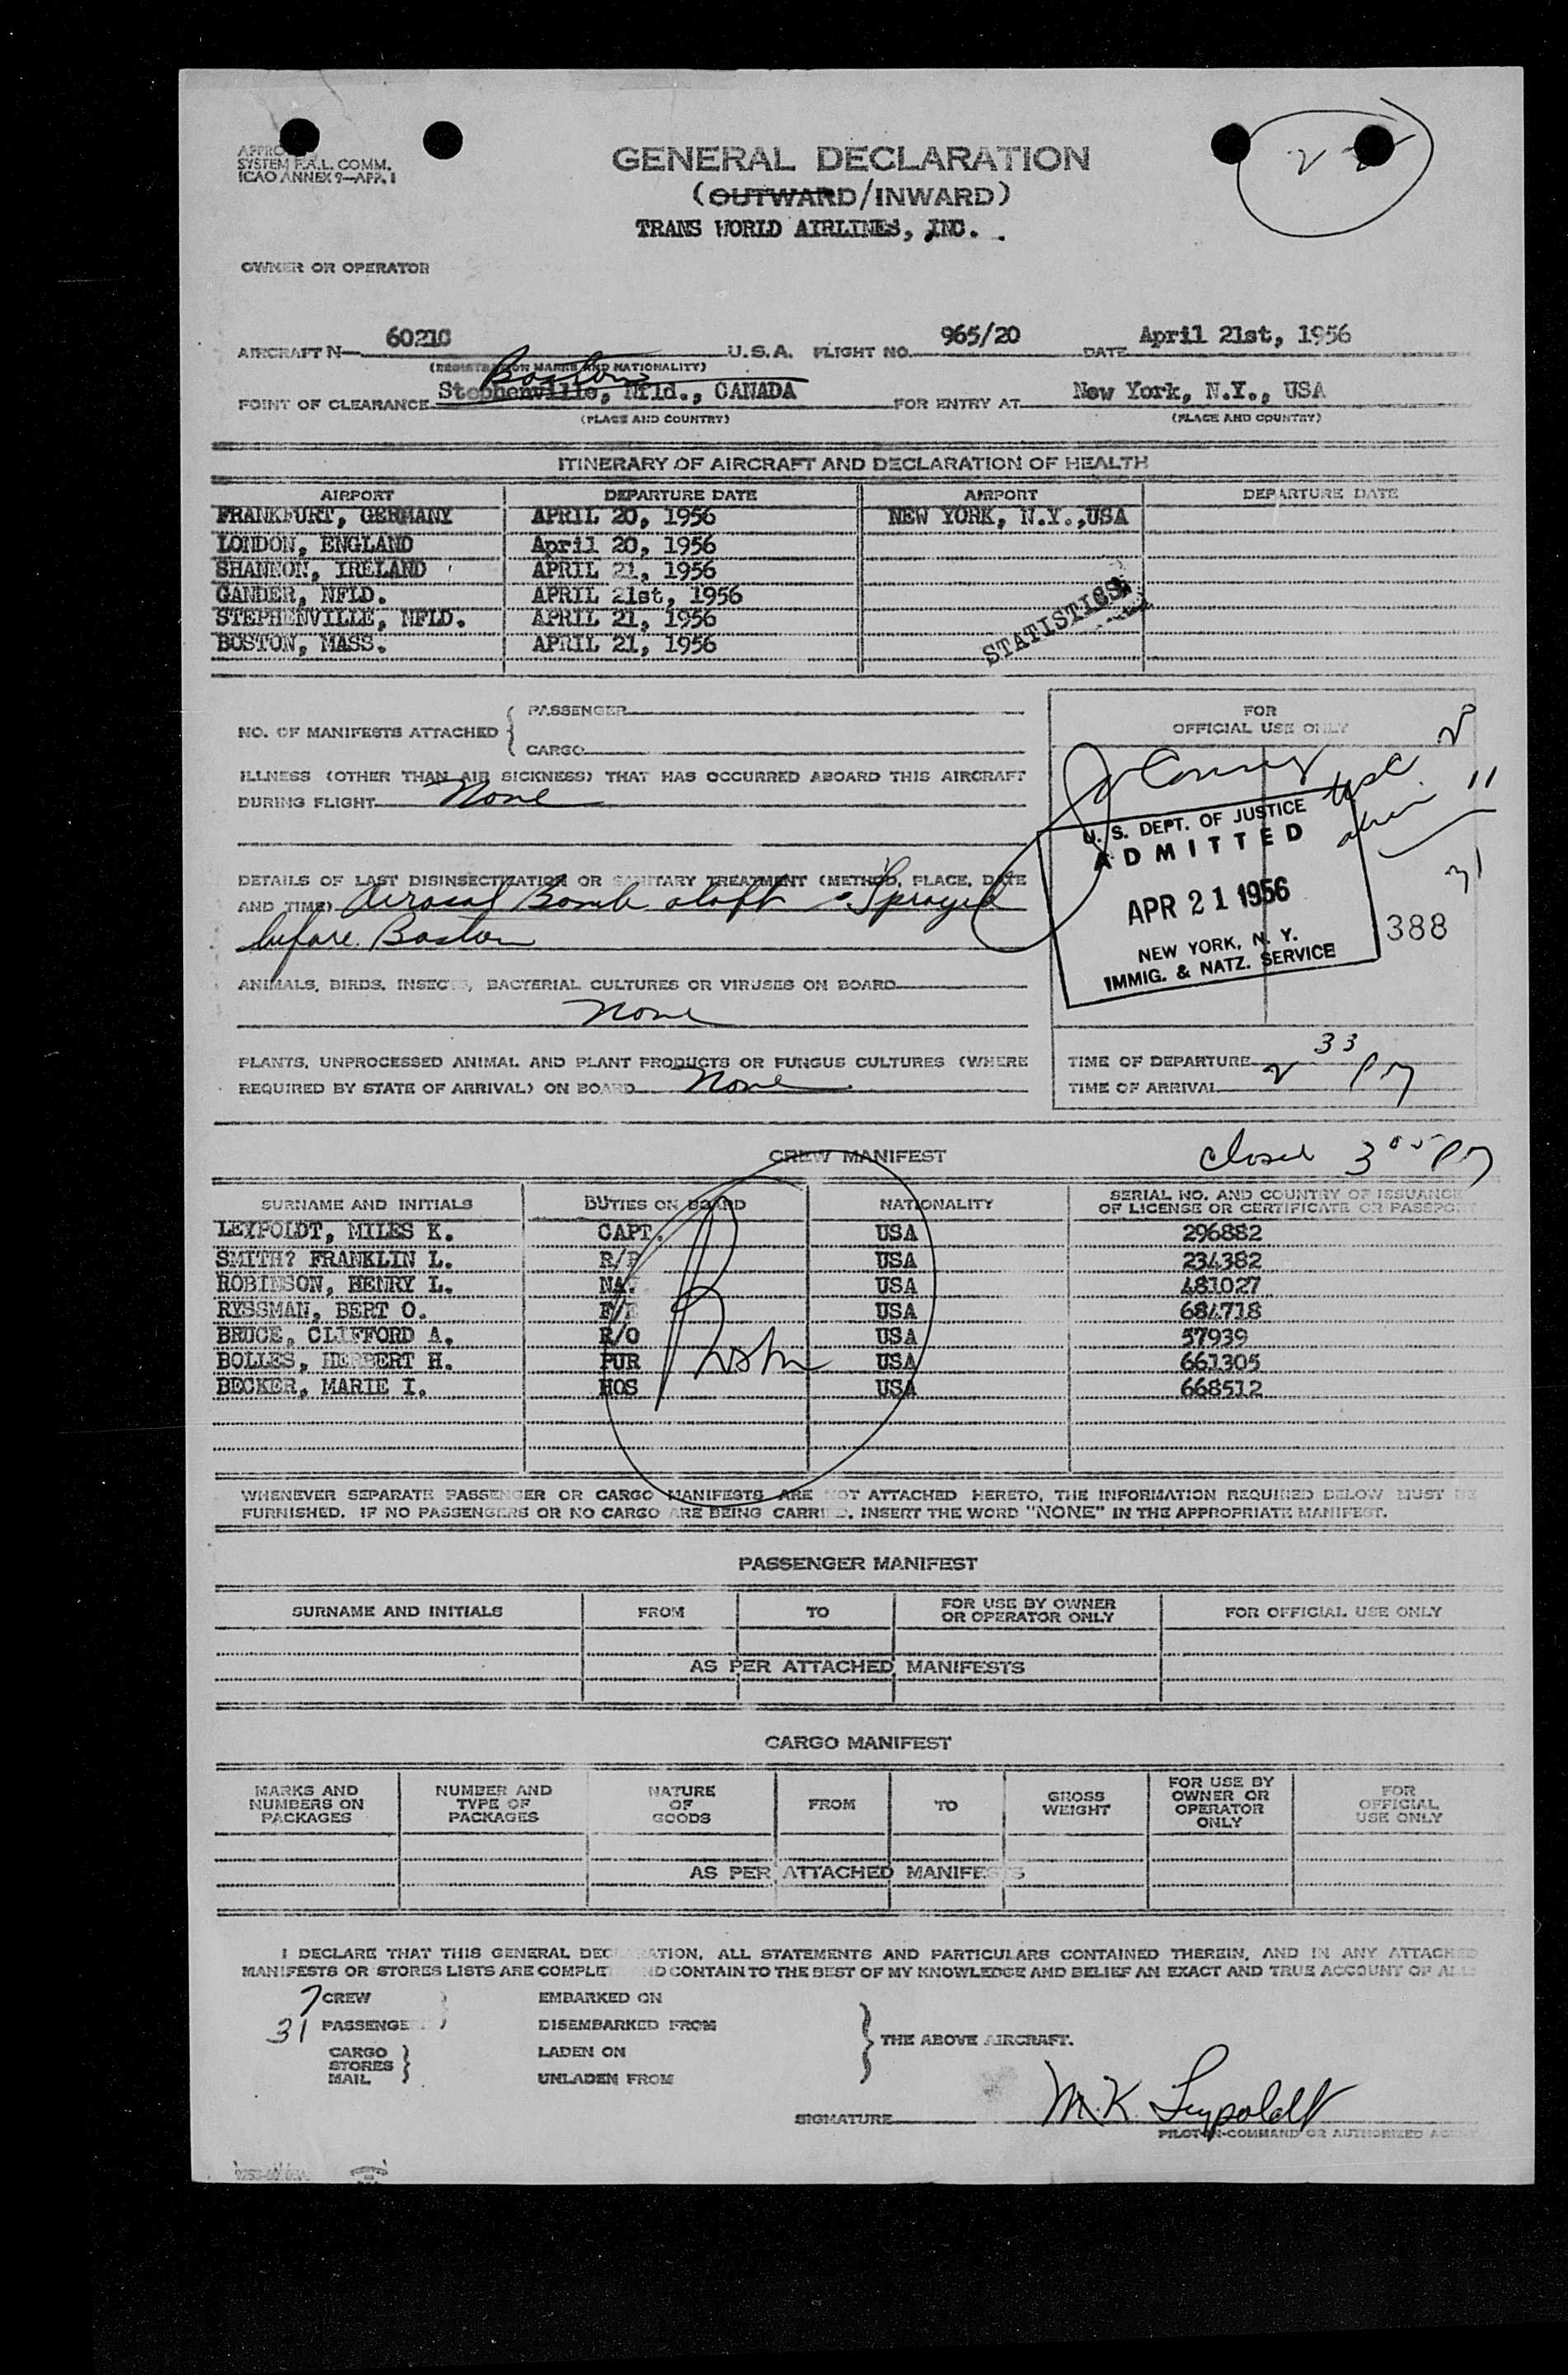 SYSTEM F.A.L. COMM.
ICAO ANNEX 9—APP. 1
GENERAL DECLARATION
(OUTWARD/INWARD)
TRANS WORLD AIRLINES, INC.
OWNER OR OPERATOR
AIRCRAFT N— 6021C U.S.A. FLIGHT NO. 965/20 DATE April 21st, 1956
(REGISTRATION MARKS AND NATIONALITY)
Boston
POINT OF CLEARANCE Stephenville, Nfld., CANADA FOR ENTRY AT New York, N.Y., USA
(PLACE AND COUNTRY) (PLACE AND COUNTRY)
ITINERARY OF AIRCRAFT AND DECLARATION OF HEALTH
AIRPORT DEPARTURE DATE AIRPORT DEPARTURE DATE
FRANKFURT, GERMANY APRIL 20, 1956 NEW YORK, N.Y.,USA
LONDON, ENGLAND April 20, 1956
SHANNON, IRELAND APRIL 21, 1956
GANDER, NFLD. APRIL 21st, 1956
STEPHENVILLE, NFLD. APRIL 21, 1956
BOSTON, MASS. APRIL 21, 1956
STATISTICS
NO. OF MANIFESTS ATTACHED { PASSENGER
CARGO
ILLNESS (OTHER THAN AIR SICKNESS) THAT HAS OCCURRED ABOARD THIS AIRCRAFT
DURING FLIGHT None
DETAILS OF LAST DISINSECTIZATION OR SANITARY TREATMENT (METHOD, PLACE, DATE
AND TIME) Aerosol Bomb aloft - Sprayed
before Boston
ANIMALS, BIRDS, INSECTS, BACTERIAL CULTURES OR VIRUSES ON BOARD
None
PLANTS, UNPROCESSED ANIMAL AND PLANT PRODUCTS OR FUNGUS CULTURES (WHERE
REQUIRED BY STATE OF ARRIVAL) ON BOARD None
FOR
OFFICIAL USE ONLY
11
U. S. DEPT. OF JUSTICE
ADMITTED
31
APR 21 1956
388
NEW YORK, N. Y.
IMMIG. & NATZ. SERVICE
TIME OF DEPARTURE
TIME OF ARRIVAL 2 33 PM
closed 3 05 PM
CREW MANIFEST
SURNAME AND INITIALS DUTIES ON BOARD NATIONALITY SERIAL NO. AND COUNTRY OF ISSUANCE
OF LICENSE OR CERTIFICATE OR PASSPORT
LEYPOLDT, MILES K. CAPT. USA 296882
SMITH? FRANKLIN L. USA 234382
ROBINSON, HENRY L. NAV USA 481027
RYSSMAN, BERT O. USA 684718
BRUCE, CLIFFORD A. R/O USA 57939
BOLLES, HERBERT H. PUR USA 661305
BECKER, MARIE I. HOS USA 668512
WHENEVER SEPARATE PASSENGER OR CARGO MANIFESTS ARE NOT ATTACHED HERETO, THE INFORMATION REQUIRED BELOW MUST BE
FURNISHED. IF NO PASSENGERS OR NO CARGO ARE BEING CARRIED, INSERT THE WORD "NONE" IN THE APPROPRIATE MANIFEST.
PASSENGER MANIFEST
SURNAME AND INITIALS FROM TO FOR USE BY OWNER OR OPERATOR ONLY FOR OFFICIAL USE ONLY
AS PER ATTACHED MANIFESTS
CARGO MANIFEST
MARKS AND NUMBERS ON PACKAGES NUMBER AND TYPE OF PACKAGES NATURE OF GOODS FROM TO GROSS WEIGHT FOR USE BY OWNER OR OPERATOR ONLY FOR OFFICIAL USE ONLY
AS PER ATTACHED MANIFESTS
I DECLARE THAT THIS GENERAL DECLARATION, ALL STATEMENTS AND PARTICULARS CONTAINED THEREIN, AND IN ANY ATTACHED
MANIFESTS OR STORES LISTS ARE COMPLETE AND CONTAIN TO THE BEST OF MY KNOWLEDGE AND BELIEF AN EXACT AND TRUE ACCOUNT OF ALL
7 CREW EMBARKED ON
31 PASSENGERS DISEMBARKED FROM
THE ABOVE AIRCRAFT.
CARGO LADEN ON
STORES
MAIL UNLADEN FROM
SIGNATURE M.K. Leypoldt
PILOT-IN-COMMAND OR AUTHORIZED AGENT